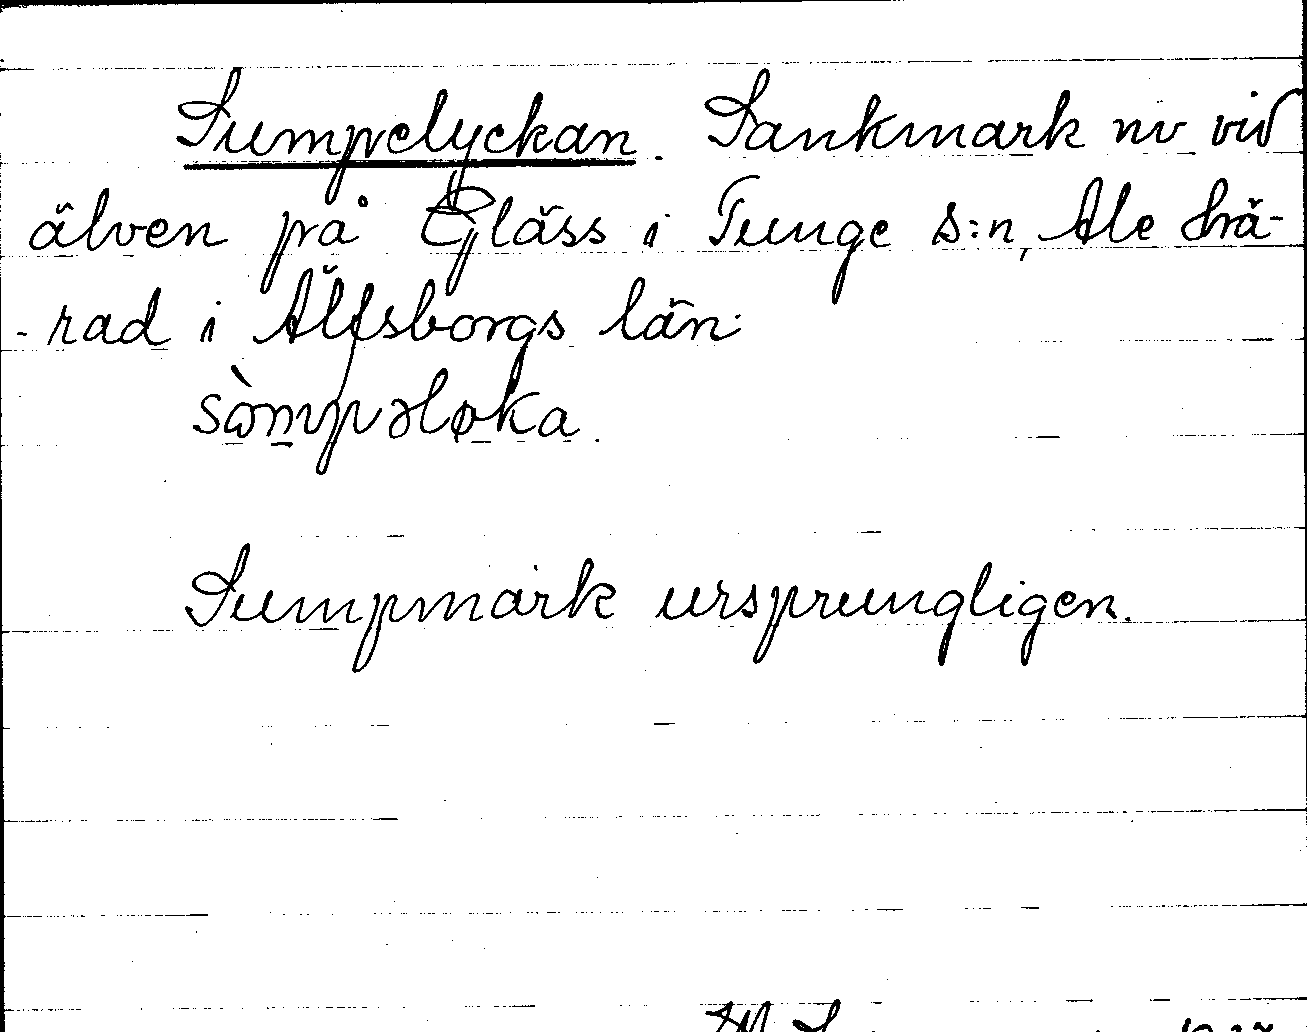 Sumpelyckan. Sankmark nv vid
älven på Gläss i Tunge s:n, Ale hä-
-rad i Älfsborgs län.
sòmpəløka.
Sumpmark ursprungligen.